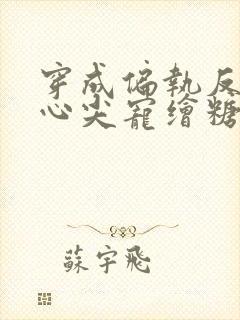 穿成偏執反
心尖寵繪糖
蘇宇飛